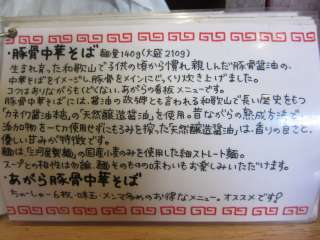 ・豚骨中華そば 麺量140g(大盛210g)
生まれ育った和歌山で子供の頃から慣れ親しんだ豚骨醤油の
中華そばをイメージし豚骨をメインにどっくり炊き上げました。
コクはありながらもくどくない、あがらの看板メニューです。
豚骨中華そばには、醤油の故郷と言われる和歌山で長い歴史をもつ
「カネイワ醤油本店」の"天然醸造醤油"を使用。昔ながらの熟成方法で
添加物を一切使用せずにもろみを搾った"天然醸造醤油"は、香りの良さと、
優しい甘みが特徴です。
麺は「三河屋製麺」の国産小麦のみを使用した細ストレート麺。
スープとの相性は勿論、麺そのものの味わいもお楽しみいただけます。
・あがら豚骨中華そば
ちゃーしゅー6枚・味玉・メンマ多めのお得なメニュー。オススメです!